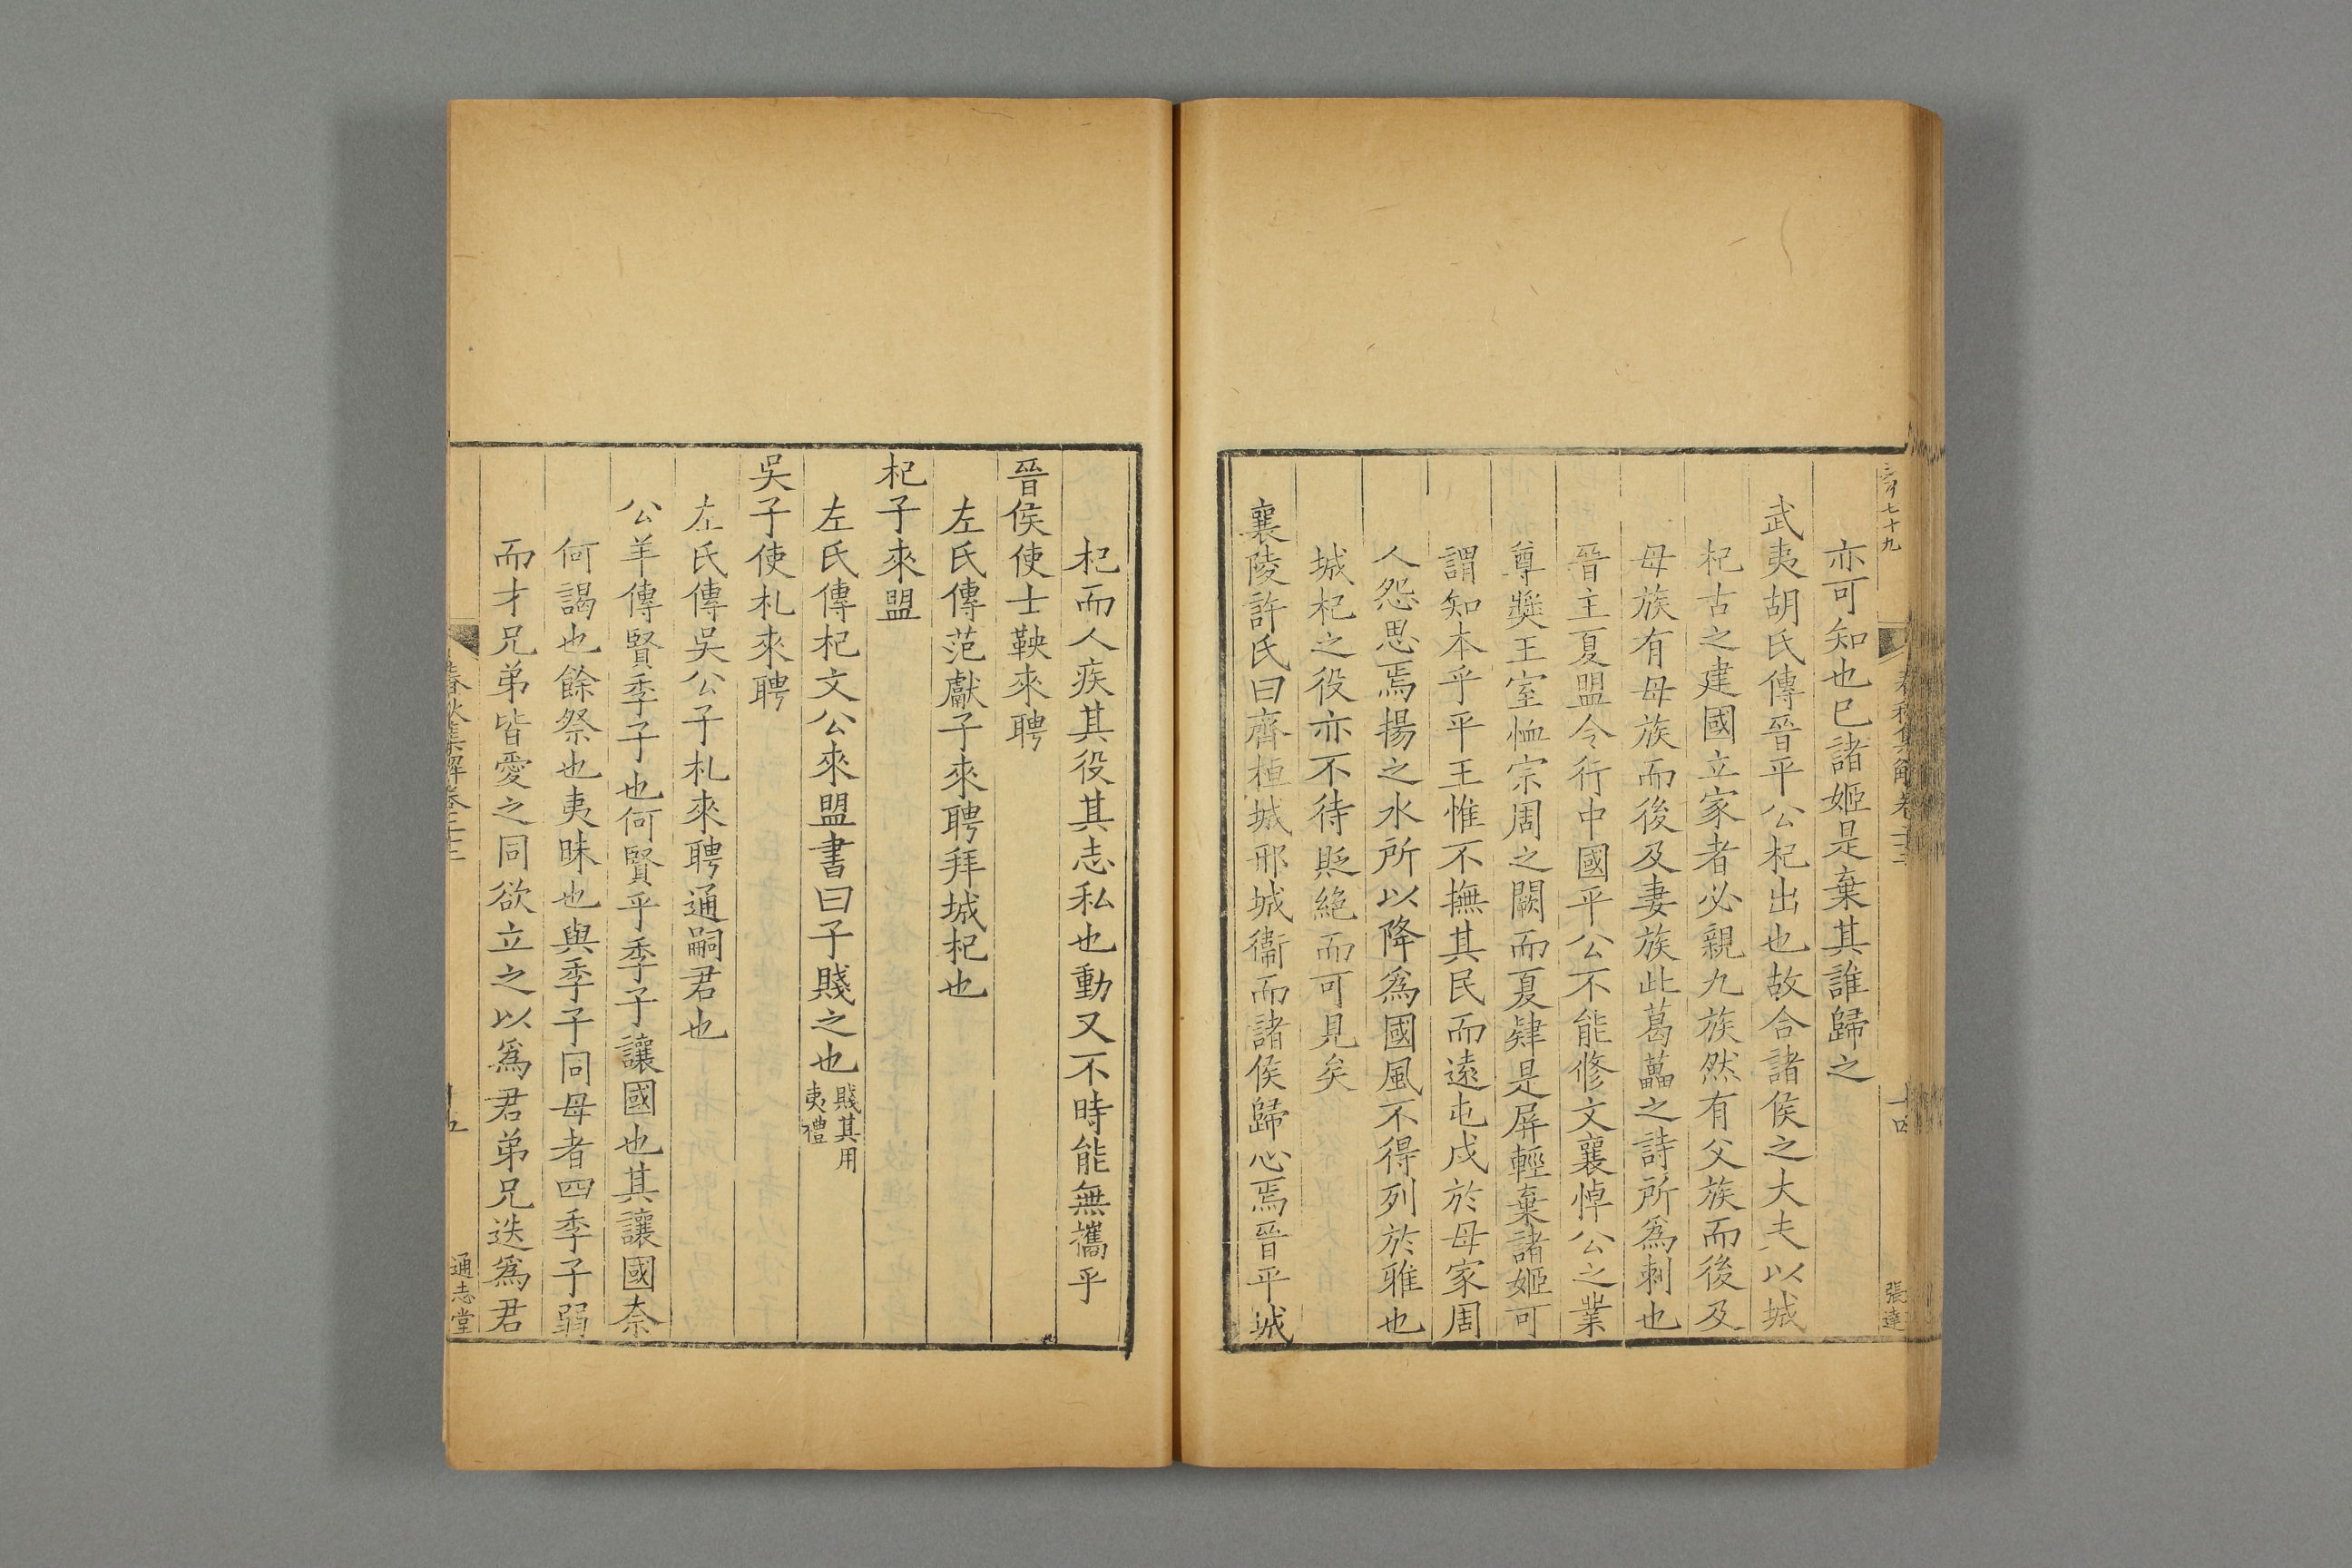 亦可知也巳諸姬是棄其誰歸之
武夷胡氏傳晉平公杞出也故合諸侯之大夫以城
杞古之建國立家者必親九族然有父族而後及
母族有母族而後及妻族此葛藟之詩所爲刺也
晉主夏盟令行中國平公不能修文襄悼公之業
尊奬王室恤宗周之闕而夏肄是屏輕棄諸姬可
謂知本乎平王惟不撫其民而遠屯戍於母家周
人怨思焉揚之水所以降爲國風不得列於雅也
城杞之役亦不待貶絶而可見矣
襄陵許氏曰齊桓城邢城衞而諸侯歸心焉晉平城
杞而人疾其役其志私也動又不時能無攜乎
晉侯使士鞅來聘
左氏傳范獻子來聘拜城杞也
杞子來盟
左氏傳杞文公來盟書曰子賤之也賤其用夷禮
吳子使札來聘
左氏傳吳公子札來聘通嗣君也
公羊傳賢季子也何賢乎季子讓國也其讓國奈
何謁也餘祭也夷昧也與季子同母者四季子弱
而才兄弟皆愛之同欲立之以爲君弟兄迭爲君
春秋集解卷二十二
通志堂
七十九
十四
張達